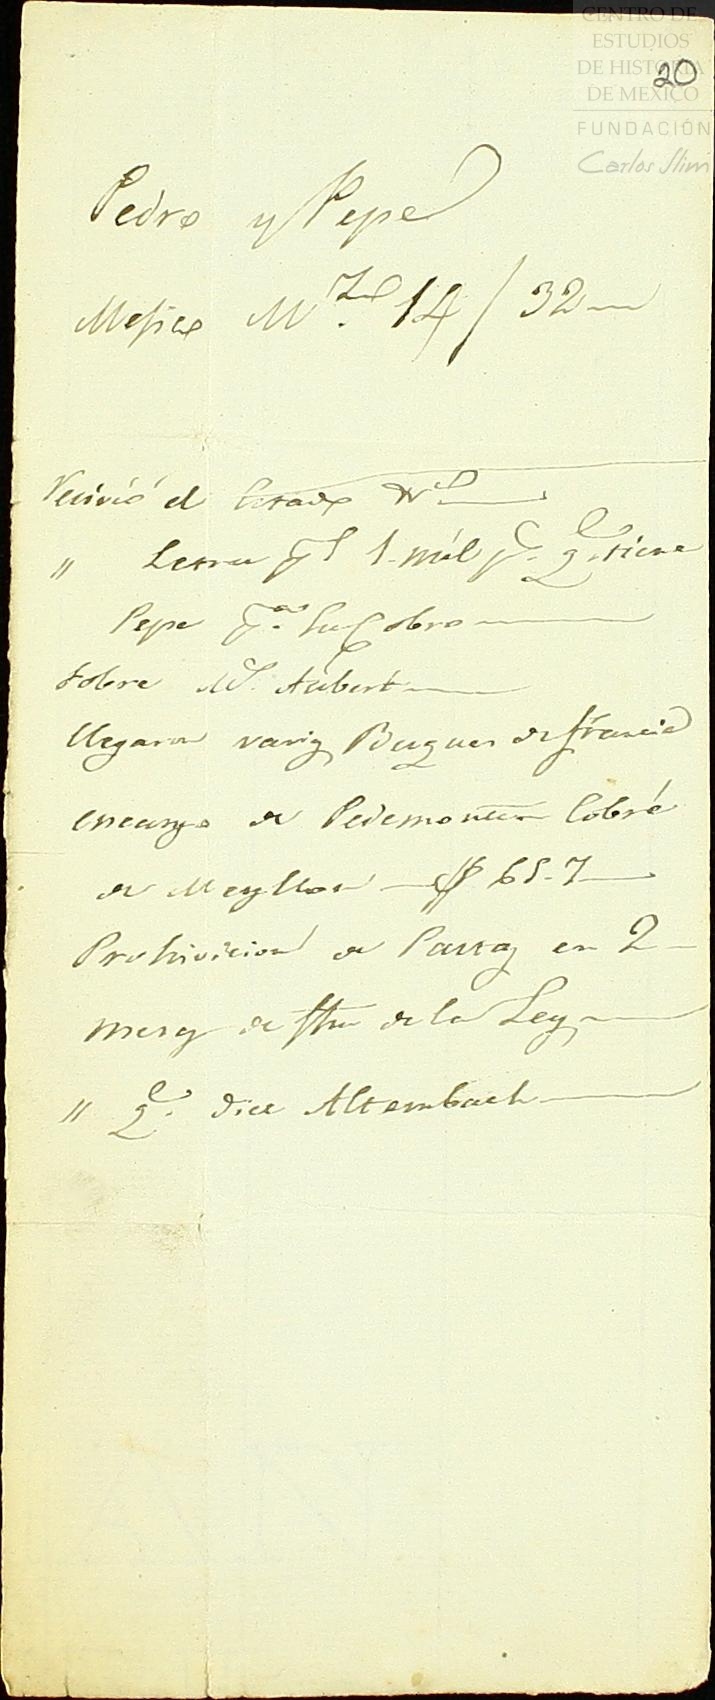 CENTRO DE
ESTUDIOS
DE HISTORIA
DE MEXICO
FUNDACIÓN
Carlos Slim
20
Pedro y Pepe
Mejico M.zo 14/32
Recivió el
" Letra pr 1 mil ps. q.e tiene
Pepe pa. su Cobro
sobre Mr. Aubert
llegaron varios Buques de francia
encargo de Pedemonte Cobré
de Meyllon $ 65-7
Prohivicion de Pastas en 2
meses de fha de la Ley
" q.e dice Altembach